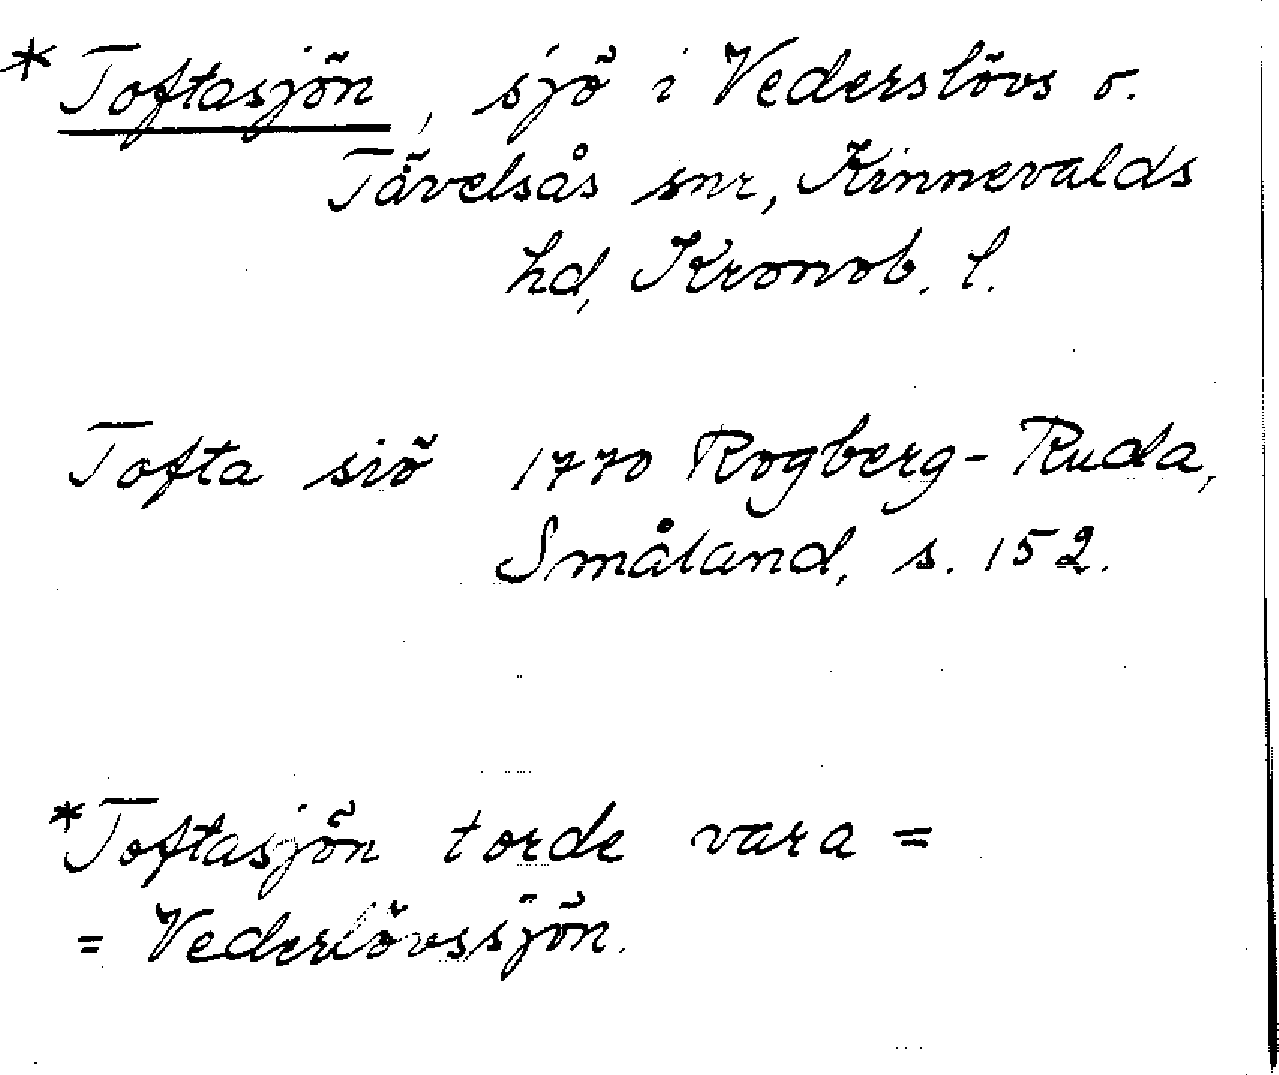 * Toftasjön, sjö i Vederslövs o.
Tävelsås snr, Kinnevalds
hd, Kronob. l.
Tofta siö 1770 Rogberg-Ruda,
Småland, s. 152.
*Toftasjön torde vara =
= Vederlövssjön.